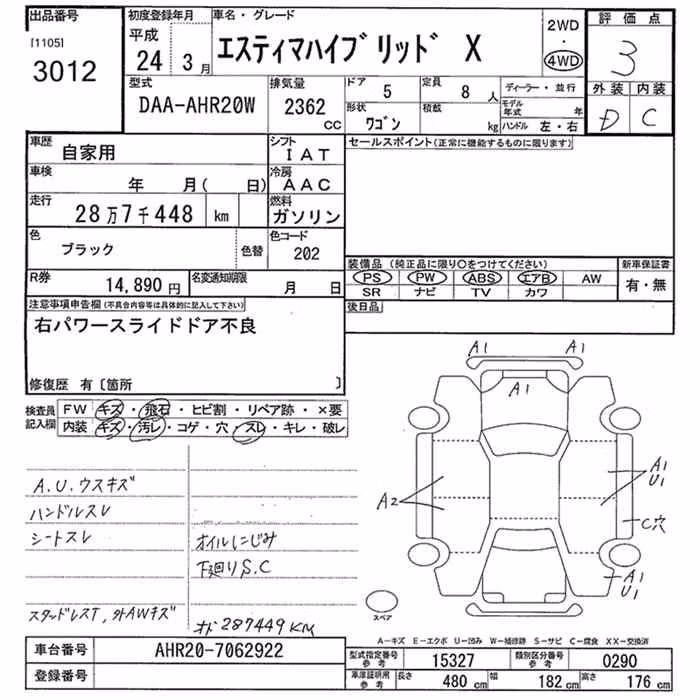 出品番号
[1105]
3012
初度登録年月
平成
24 3月
車名・グレード
エスティマハイブリッド X
2WD
・
4WD
評価点
3
外装 内装
D C
型式
DAA-AHR20W
排気量
2362
cc
ドア 5
定員 8 人
形状 ワゴン
積載 kg
ディーラー・並行
モデル年式 年
ハンドル 左・右
車歴
自家用
シフト
IAT
車検
年 月( 日)
冷房
AAC
走行
28万7千448 km
燃料
ガソリン
色
ブラック
色替
色コード
202
R券
14,890円
名変通知期限
月 日
セールスポイント(正常に機能するものに限ります)
装備品(純正品に限り○をつけてください)
PS PW ABS エアB AW
SR ナビ TV カワ
新車保証書
有・無
後日品
注意事項申告欄(不具合内容等は具体的に記入して下さい)
右パワースライドドア不良
修復歴 有〔箇所 〕
検査員記入欄
FW キズ・飛石・ヒビ割・リペア跡・×要
内装 キズ・汚レ・コゲ・穴・スレ・キレ・破レ
A.U.ウスキズ
ハンドルスレ
シートスレ
オイルにじみ
下廻りS.C
スタッドレスT,外AWキズ
オド 287449KM
A1 A1
A1
A2
A1
U1
C穴
A1
U1
スペア
A−キズ E−エクボ U−凹み W−補修跡 S−サビ C−腐食 XX−交換済
車台番号
AHR20-7062922
登録番号
型式指定番号
参考
15327
類別区分番号
参考
0290
車庫証明用
参考
長さ 480 cm
幅 182 cm
高さ 176 cm